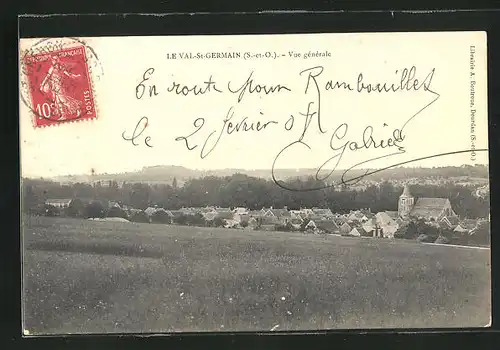 LE VAL-St-GERMAIN (S.-et-O.). - Vue générale
En route pour Rambouillet
le 2 février 07
Gabriel
10
POSTES
Librairie A. Boutroue, Dourdan (S.-et-O.)